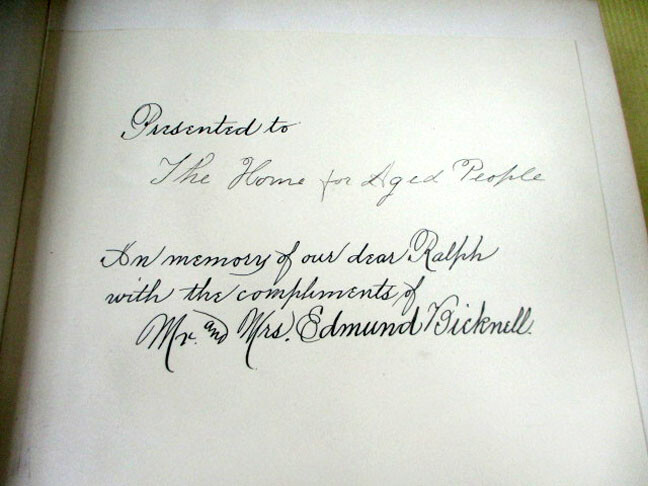 Presented to
The Home for Aged People
In memory of our dear Ralph
with the compliments of
Mr. and Mrs. Edmund Bicknell.